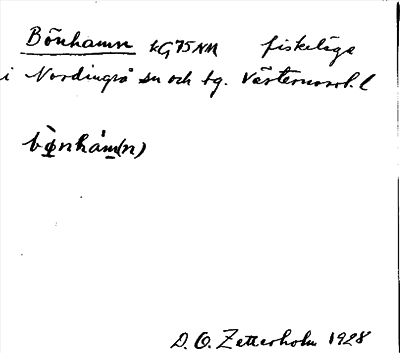 Bönhamn kG75NN fiskeläge
i Nordingrå sn och tg. Västernorrl. l
bø̀nhàm(n)
D. O. Zetterholm 1928